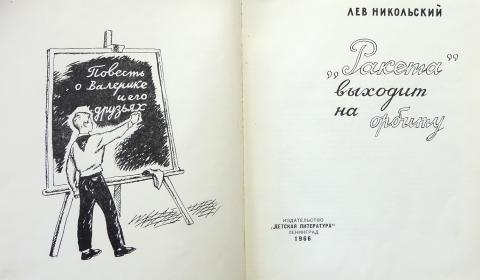 Повесть
о Валерике
и его
друзьях
ЛЕВ НИКОЛЬСКИЙ
„Ракета“
выходит
на орбиту
ИЗДАТЕЛЬСТВО
„ДЕТСКАЯ ЛИТЕРАТУРА“
ЛЕНИНГРАД
1966